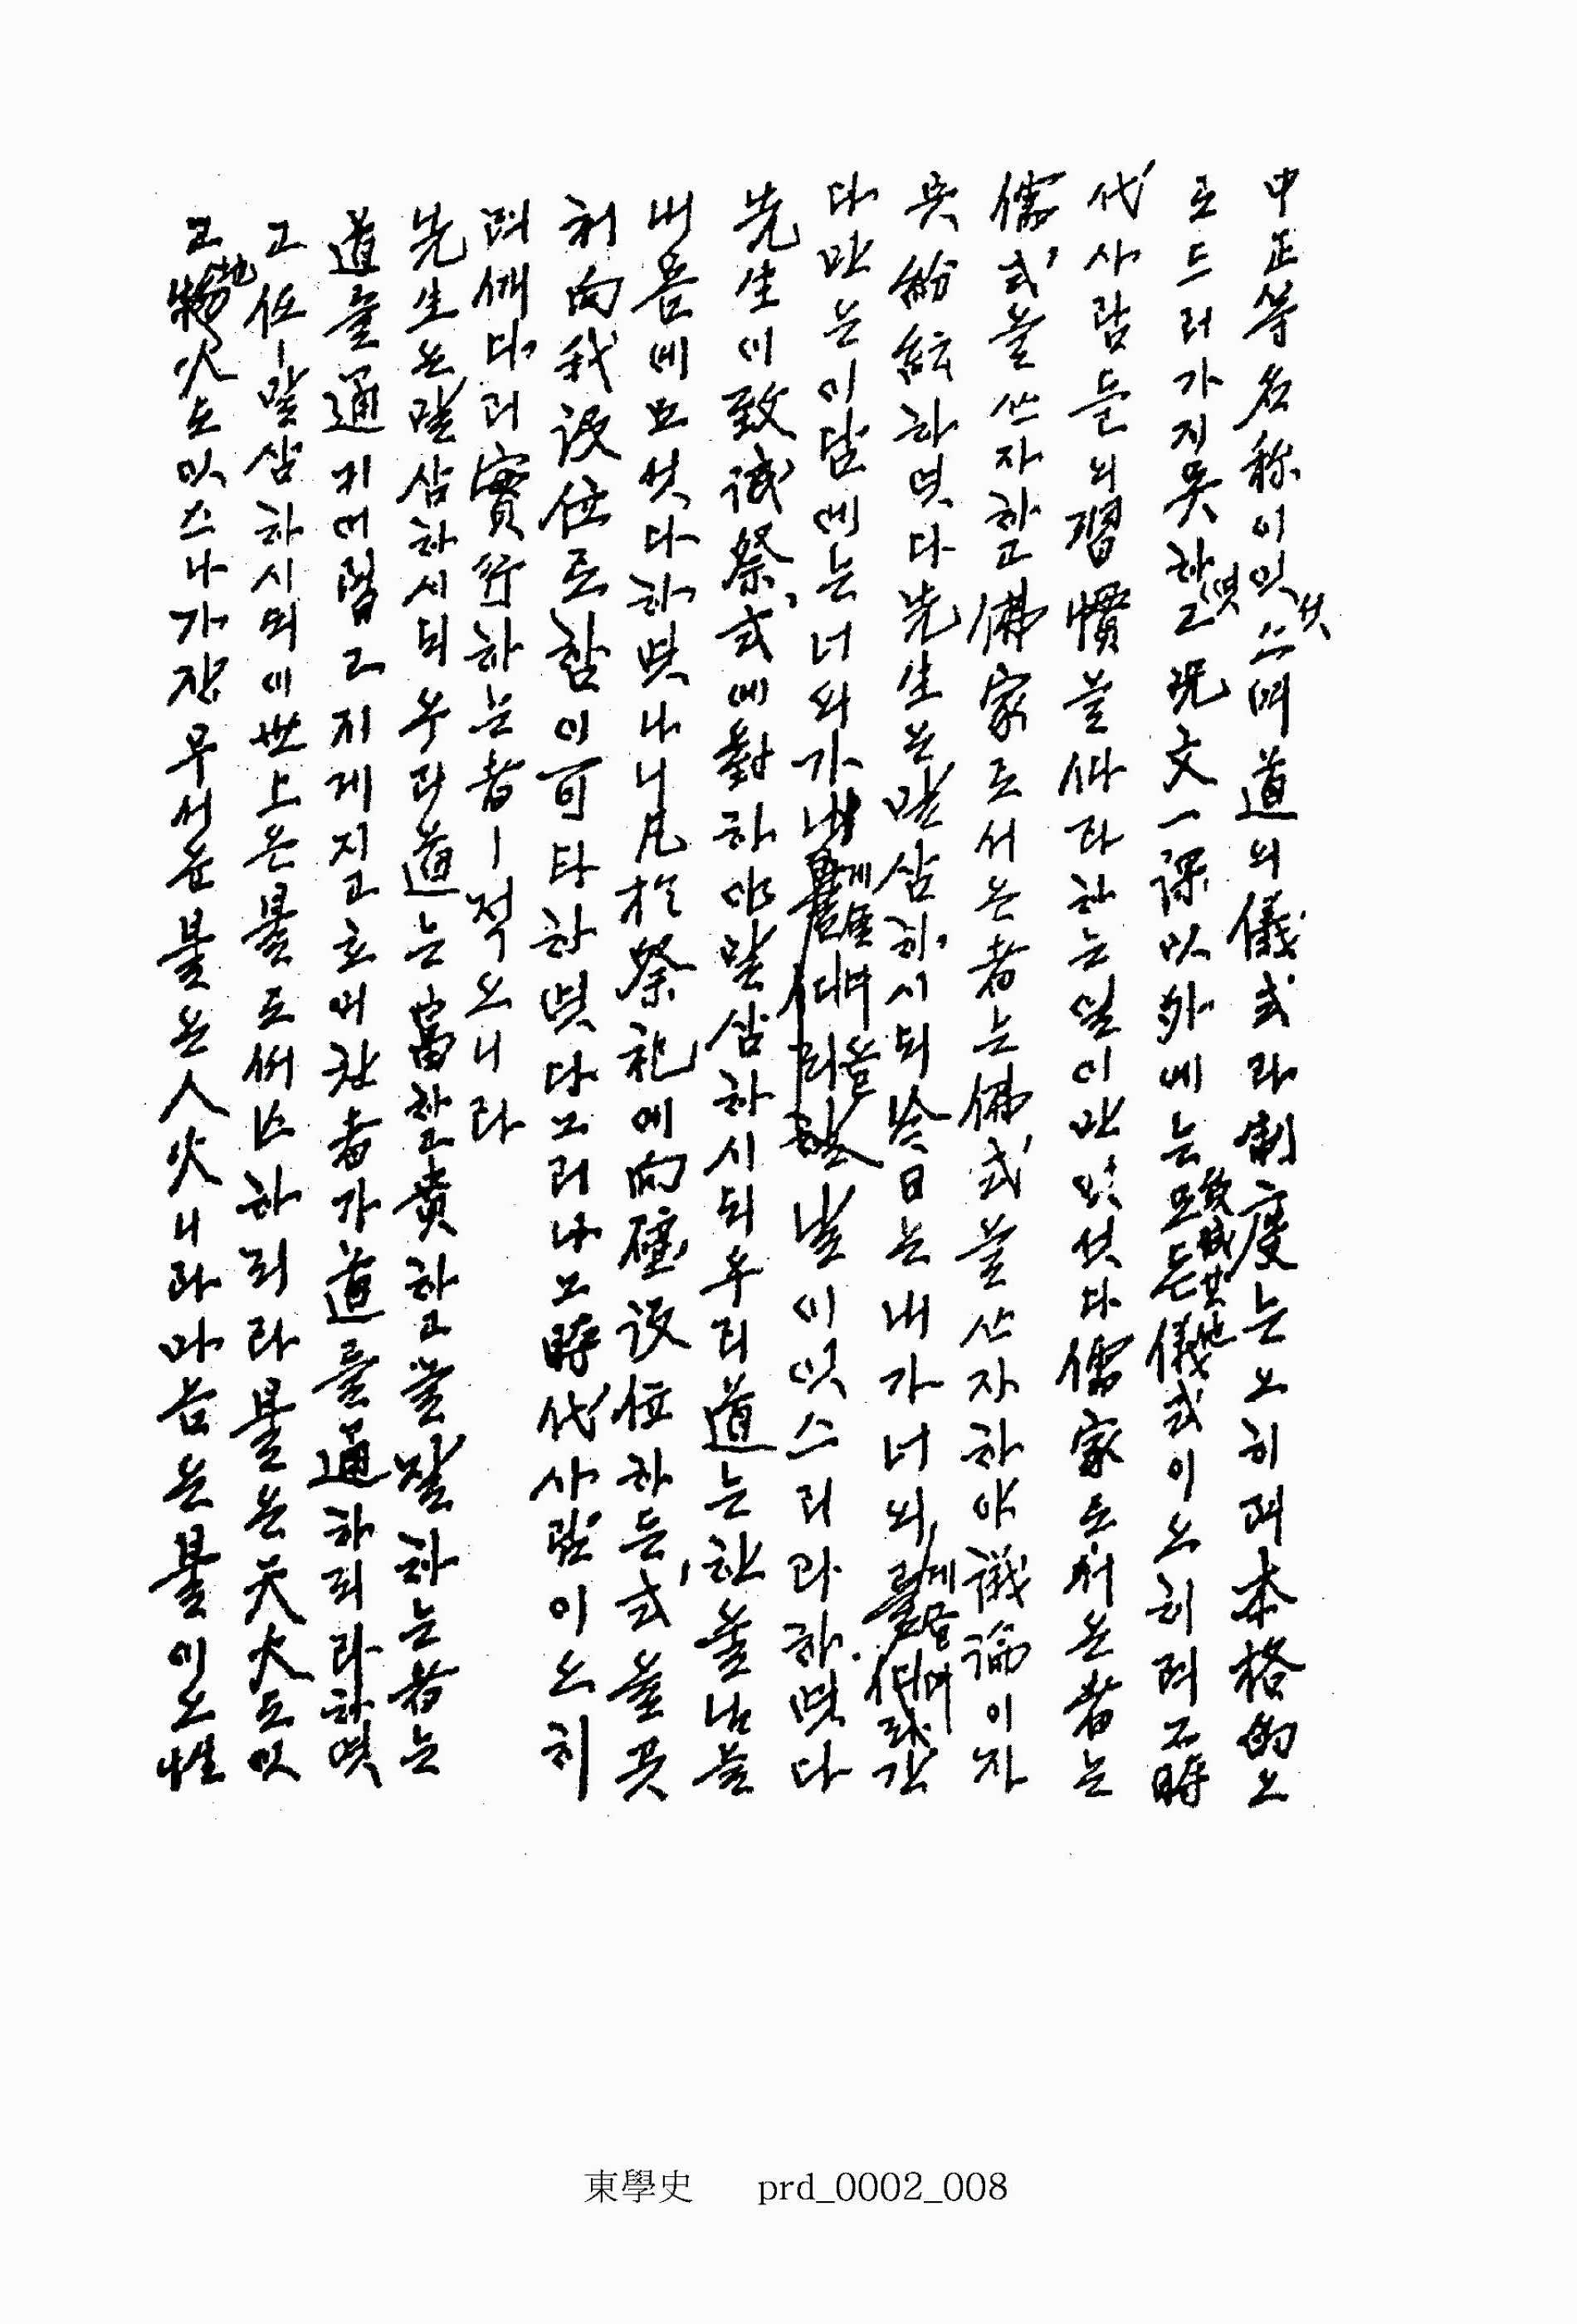 中正等名称이잇섯스며道의儀式라制度는오히려本格的으
로드러가지못하엿고呪文一課以外에는모든儀式이오히려그時
代사람들의習慣을따라하는일이만앗섯다儒家로서온者는
儒式을쓰자하고佛家로서온者는佛式을쓰자하야議論이자
못紛紜하엿다先生은말삼하시되今日는내가너의게
다만은이담에는너의가내게 날이잇스리라하엿다
先生이致誠祭式에對하야말삼하시되우리道는한울님을
내몸에모섯다하엿나니凡於祭祀에向壁設位하든式을곳
처向我設位로함이可타하엿다그러나그時代사람이오히
려깨다러實行하는者ㅣ적으니라
先生은말삼하시되우리道는富하고貴하고를말하는者는
道를通키어렵고지게지고호미찬者가道를通하리라하엿
고任ㅣ말삼하시되이世上은불로써 하리라불은天火도잇
고地火도잇스나가장무서운불은人火니라마음은불이오性